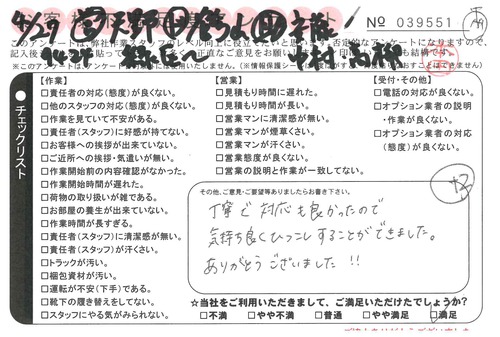 № 039551
このアンケートは、弊社作業スタッフのレベル向上に役立てたいと思います。否定的なアンケートになりますので、
チェックリスト
【作業】
□責任者の対応(態度)が良くない。
□他のスタッフの対応(態度)が良くない。
□作業を見ていて不安がある。
□責任者(スタッフ)に好感が持てない。
□お客様への挨拶が出来ていない。
□ご近所への挨拶・気遣いが無い。
□作業開始前の内容確認がなかった。
□作業開始時間が遅れた。
□荷物の取り扱いが雑である。
□お部屋の養生が出来ていない。
□作業時間が長すぎる。
□責任者(スタッフ)に清潔感が無い。
□責任者(スタッフ)が汗くさい。
□トラックが汚い。
□梱包資材が汚い。
□運転が不安(下手)である。
□靴下の履き替えをしてない。
□スタッフにやる気が感じられない。
【営業】
□見積もり時間に遅れた。
□見積もり時間が長い。
□営業マンに清潔感が無い。
□営業マンが煙草くさい。
□営業マンが汗くさい。
□営業態度が良くない。
□営業の説明と作業が一致してない。
【受付・その他】
□電話の対応が良くない。
□オプション業者の説明
・作業が良くない。
□オプション業者の対応
(態度)が良くない。
その他、ご意見・ご要望等ありましたらお書き下さい。
丁寧で対応も良かったので
気持ち良くひっこしすることができました。
ありがとうございました!!
☆当社をご利用いただきまして、ご満足いただけてでしょうか?
□不満 □やや不満 □普通 □やや満足 □満足